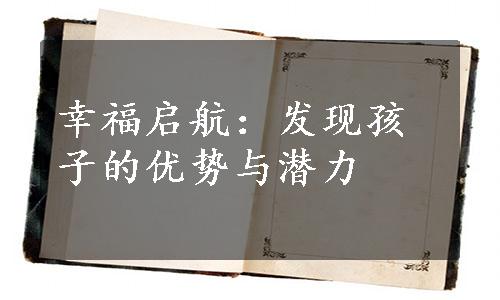 幸福启航：发现孩
子的优势与潜力